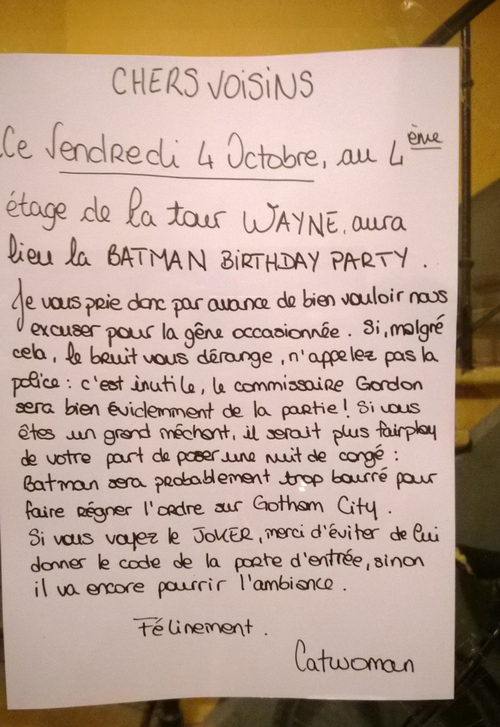 CHERS VOISINS
Ce Vendredi 4 Octobre, au 4ème
étage de la tour WAYNE, aura
lieu la BATMAN BIRTHDAY PARTY.
Je vous prie donc par avance de bien vouloir nous
excuser pour la gêne occasionnée. Si, malgré
cela, le bruit vous dérange, n'appelez pas la
police : c'est inutile, le commissaire Gordon
sera bien évidemment de la partie ! Si vous
êtes un grand méchant, il serait plus fairplay
de votre part de poser une nuit de congé :
Batman sera probablement trop bourré pour
faire régner l'ordre sur Gotham City.
Si vous voyez le JOKER, merci d'éviter de lui
donner le code de la porte d'entrée, sinon
il va encore pourrir l'ambiance.
Félinement.
Catwoman